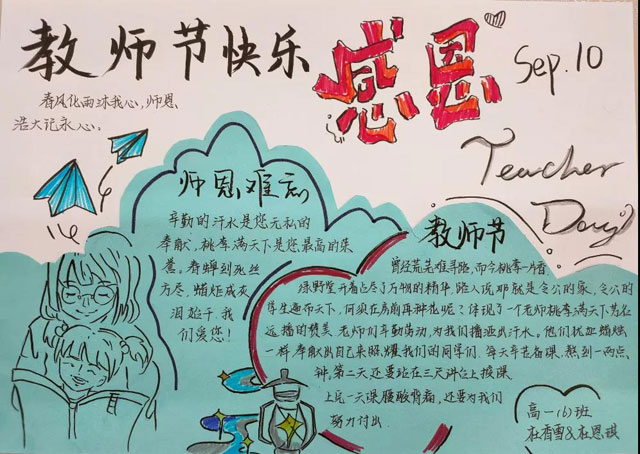 教师节快乐
感恩
Sep.10
春风化雨沐我心,师恩
浩大记永心。
Teacher
Day
师恩难忘
辛勤的汗水是您无私的
奉献,桃李满天下是您最高的荣
誉。春蝉到死丝
方尽,蜡炬成灰
泪始干,我
们爱您!
教师节
曾经荒芜难寻路,而今桃李一片香
绿野堂开着占尽了万物的精华,路人说那就是令公的家,令公的
学生遍布天下,何须在房前再种花呢?体现了一个老师桃李满天下,名
远播的赞美,老师们辛勤劳动,为我们播洒出汗水。他们犹如蜡烛
一样,奉献出自己来照耀我们的同学们,每天辛苦备课,熬到一两点
钟,第二天还要站在三尺讲台上授课
上完一天课腰酸背着,还要为我们
努力付出
高一(6)班
杜香雪&杜恩琪